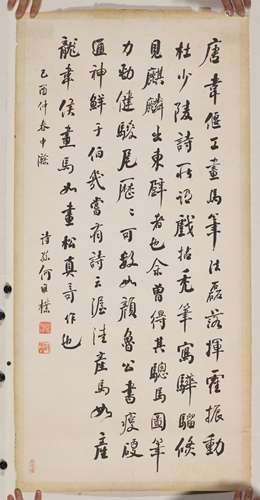 唐韋偃工畫馬筆法磊落揮霍振動
杜少陵詩所謂戲拈禿筆寫驊騮倏
見麒麟出東壁者也余曾得其驄馬圖筆
力勁健駿尾歷歷可數如顏魯公書瘦硬
通神鮮于伯幾嘗有詩云渥洼產馬如產
龍韋侯畫馬如畫松真奇作也
己酉仲春中澣
詩孫何維樸